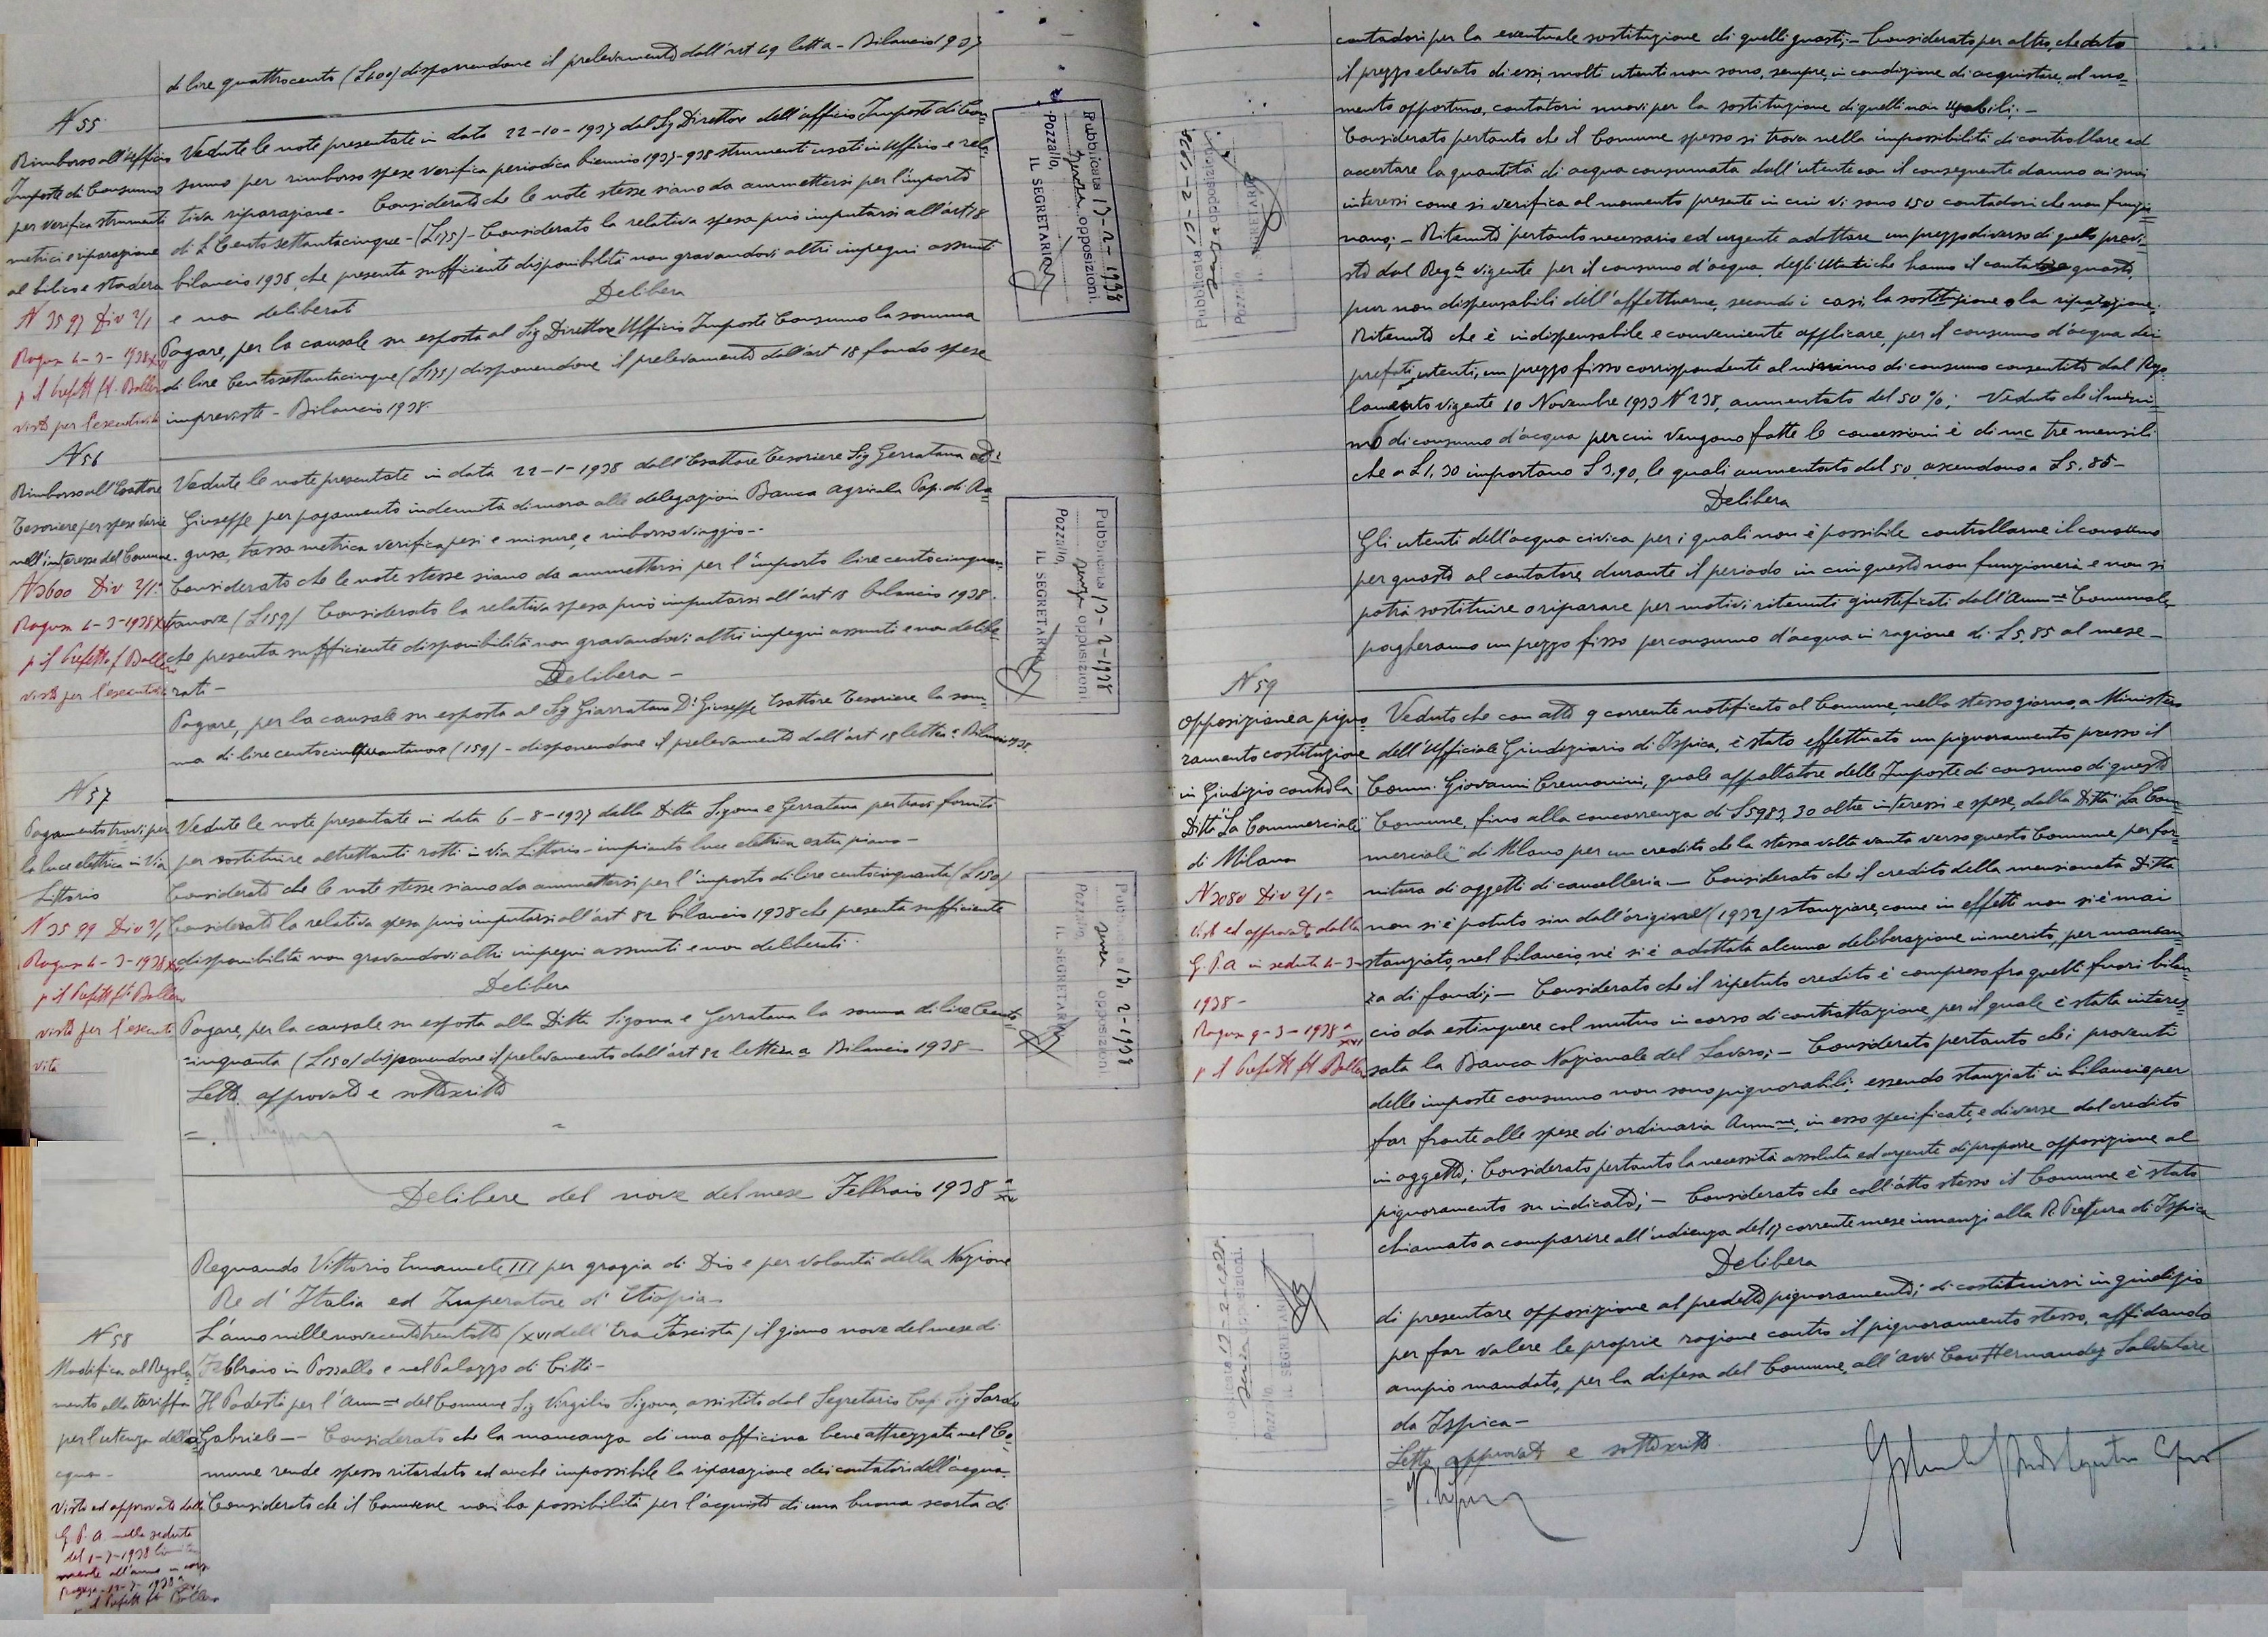 di lire quattrocento (L400) disponendone il prelevamento dall'art 49 lett a - Bilancio 1937
N 55
Rimborso all'Ufficio
Imposte di Consumo
per verifica strumenti
metrici e riparazione
al bilico e stadera
N 3597 Div 2/1
Ragusa 4-3-1938 XVI
p il Prefetto ft Ballero
visto per l'esecutività
Vedute le note presentate in data 22-10-1937 dal Sig Direttore dell'ufficio Imposte di Con=
sumo per rimborso spese verifica periodica biennio 1937-938 strumenti usati in Ufficio e rela
tiva riparazione - Considerato che le note stesse siano da ammettersi per l'importo
di L Centosettantacinque - (L175) - Considerato la relativa spesa può imputarsi all'art 18
bilancio 1938, che presenta sufficiente disponibilità non gravandovi altri impegni assunti
e non deliberati
Delibera
Pagare, per la causale su esposta al Sig Direttore Ufficio Imposte Consumo la somma
di lire Centosettantacinque (L175) disponendone il prelevamento dall'art 18 fondo spese
impreviste - Bilancio 1938.
Pubblicata 13-2-1938
senza opposizioni.
Pozzallo,
IL SEGRETARIO
N 56
Rimborso all'Esattore
Tesoriere per spese varie
nell'interesse del Comune.
N 3600 Div 2/1ª
Ragusa 4-3-1938 XVI
p il Prefetto f Ballero
visto per l'esecutivi
Vedute le note presentate in data 22-1-1938 dall'Esattore Tesoriere Sig Gerratana
Giuseppe per pagamento indennità di mora alle delegazioni Banca Agricola Pop. di Ra=
gusa, tassa metrica verifica pesi e misure, e rimborso viaggio -
Considerato che le note stesse siano da ammettersi per l'importo lire centocinquan=
tanove (L159) Considerato la relativa spesa può imputarsi all'art 18 bilancio 1938.
che presenta sufficiente disponibilità non gravandovi altri impegni assunti e non delibe=
rati -
Delibera -
Pagare, per la causale su esposta al Sig Giarratana Dr Giuseppe Esattore Tesoriere la som=
ma di lire centocinquantanove (159) - disponendone il prelevamento dall'art 18 lettera Bilancio 1938.
Pubblicata 13-2-1938
senza opposizioni
Pozzallo,
IL SEGRETARIO
N 57
Pagamento travi per
la luce elettrica in Via
Littorio
N 3599 Div 2/1
Ragusa 4-3-1938 XVI
p il Prefetto ft Ballero
visto per l'esecuti
vità
Vedute le note presentate in data 6-8-1937 dalla Ditta Sigona e Gerratana per travi forniti
per sostituire altrettanti rotti in Via Littorio - impianto luce elettrica extra piano -
Considerato che le note stesse siano da ammettersi per l'importo di lire centocinquanta (L150)
Considerato la relativa spesa può imputarsi all'art 82 bilancio 1938 che presenta sufficiente
disponibilità non gravandovi altri impegni assunti e non deliberati.
Delibera
Pagare, per la causale su esposta alla Ditta Sigona e Gerratana la somma di lire Cento=
cinquanta (L150) disponendone il prelevamento dall'art 82 lettera a Bilancio 1938 -
Letto. approvato e sottoscritto
Pubblicata 13, 2-1938
senza opposizioni
Pozzallo,
IL SEGRETARIO
Delibere del nove del mese Febbraio 1938
Regnando Vittorio Emanuele III per grazia di Dio e per volontà della Nazione
Re d'Italia ed Imperatore d'Etiopia -
N 58
Modifica al Regola
mento alla tariffa
per l'utenza dell'a
cqua -
Visto ed approvato dalla
G. P. A. nella seduta
del 1-3-1938 limita
mente all'anno in corso
p il Prefetto ft Ballero
L'anno millenovecentotrentotto (XVI dell'Era Fascista) il giorno nove del mese di
Febbraio in Pozzallo e nel Palazzo di Città -
Il Podestà per l'Amm.ne del Comune Sig Virgilio Sigona, assistito dal Segretario Capo Sig Sardo
Gabriele - Considerato che la mancanza di una officina bene attrezzata nel Co=
mune rende spesso ritardata ed anche impossibile la riparazione dei contatori dell'acqua.
Considerato che il Comune non ha possibilità per l'acquisto di una buona scorta di
contadori per la eventuale sostituzione di quelli guasti; - Considerato per altro, che dato
il prezzo elevato di essi molti utenti non sono, sempre, in condizione di acquistare, al mo=
mento opportuno, contatori nuovi per la sostituzione di quelli non usabili; -
Considerato pertanto che il Comune spesso si trova nella impossibilità di controllare ed
accertare la quantità di acqua consumata dall'utente con il conseguente danno ai suoi
interessi come si verifica al momento presente in cui vi sono 150 contadori che non funzio=
nano; - Ritenuto pertanto necessario ed urgente adottare un prezzo diverso di quello previ=
sto dal Regto vigente per il consumo d'acqua degli utenti che hanno il contatore guasto,
pur non dispensabili dell'effettuarne, secondo i casi, la sostituzione o la riparazione;
Ritenuto che è indispensabile e conveniente applicare, per il consumo d'acqua dei
prefati utenti, un prezzo fisso corrispondente al minimo di consumo consentito dal Rego
lamento vigente 10 Novembre 1933 N 238, aumentato del 50%; Veduto che il mini=
mo di consumo d'acqua per cui vengono fatte le concessioni è di mc tre mensili
che a L1,30 importano L 3,90, le quali aumentato del 50 ascendono a L 5.85 -
Delibera
Gli utenti dell'acqua civica per i quali non è possibile controllarne il consumo
per guasto al contatore, durante il periodo in cui questo non funzionerà e non si
potrà sostituire o riparare per motivi ritenuti giustificati dall'Amm.ne Comunale,
pagheranno un prezzo fisso per consumo d'acqua in ragione di L 5,85 al mese -
Pubblicata 13-2-1938.
senza opposizioni.
Pozzallo
IL SEGRETARIO
N 59
Opposizione a pigno=
ramento costituzione
in Giudizio contro la
Ditta "La Commerciale"
di Milano
N 3080 Div 2/1ª
Visto ed approvato dalla
G. P. A in seduta 4-3-
1938 -
Ragusa 9-3-1938 XVI
p il Prefetto ft Ballero
Veduto che con atto 9 corrente notificato al Comune nello stesso giorno, a Ministero
dell'Ufficiale Giudiziario di Ispica, è stato effettuato un pignoramento presso il
Comm. Giovanni Cremonini, quale appaltatore delle Imposte di consumo di questo
Comune, fino alla concorrenza di L5983,30 oltre interessi e spese, dalla Ditta "La Com=
merciale" di Milano per un credito che la stessa volta vanta verso questo Comune per for=
nitura di oggetti di cancelleria. - Considerato che il credito della menzionata Ditta
non si è potuto sin dall'origine (1932) stanziare, come in effetti non si è mai
stanziato, nel bilancio, né si è adottata alcuna deliberazione in merito, per mancan=
za di fondi; - Considerato che il ripetuto credito è compreso fra quelli fuori bilan=
cio da estinguere col mutuo in corso di contrattazione, per il quale è stata interes=
sata la Banca Nazionale del Lavoro; - Considerato pertanto che i proventi
delle imposte consumo non sono pignorabili, essendo stanziati in bilancio per
far fronte alle spese di ordinaria Amm.ne, in esso specificate, e diverse dal credito
in oggetto; Considerato pertanto la necessità assoluta ed urgente di proporre opposizione al
pignoramento su indicato; - Considerato che coll'atto stesso il Comune è stato
chiamato a comparire all'udienza del 17 corrente mese innanzi alla R. Pretura di Ispica
Delibera
di presentare opposizione al predetto pignoramento; di costituirsi in giudizio
per far valere le proprie ragione contro il pignoramento stesso, affidando
ampio mandato, per la difesa del Comune, all'Avv Cav Hernandez Salvatore
da Ispica -
Letto approvato e sottoscritto
Pubblicata 13-2-1938.
senza opposizioni.
Pozzallo
IL SEGRETARIO